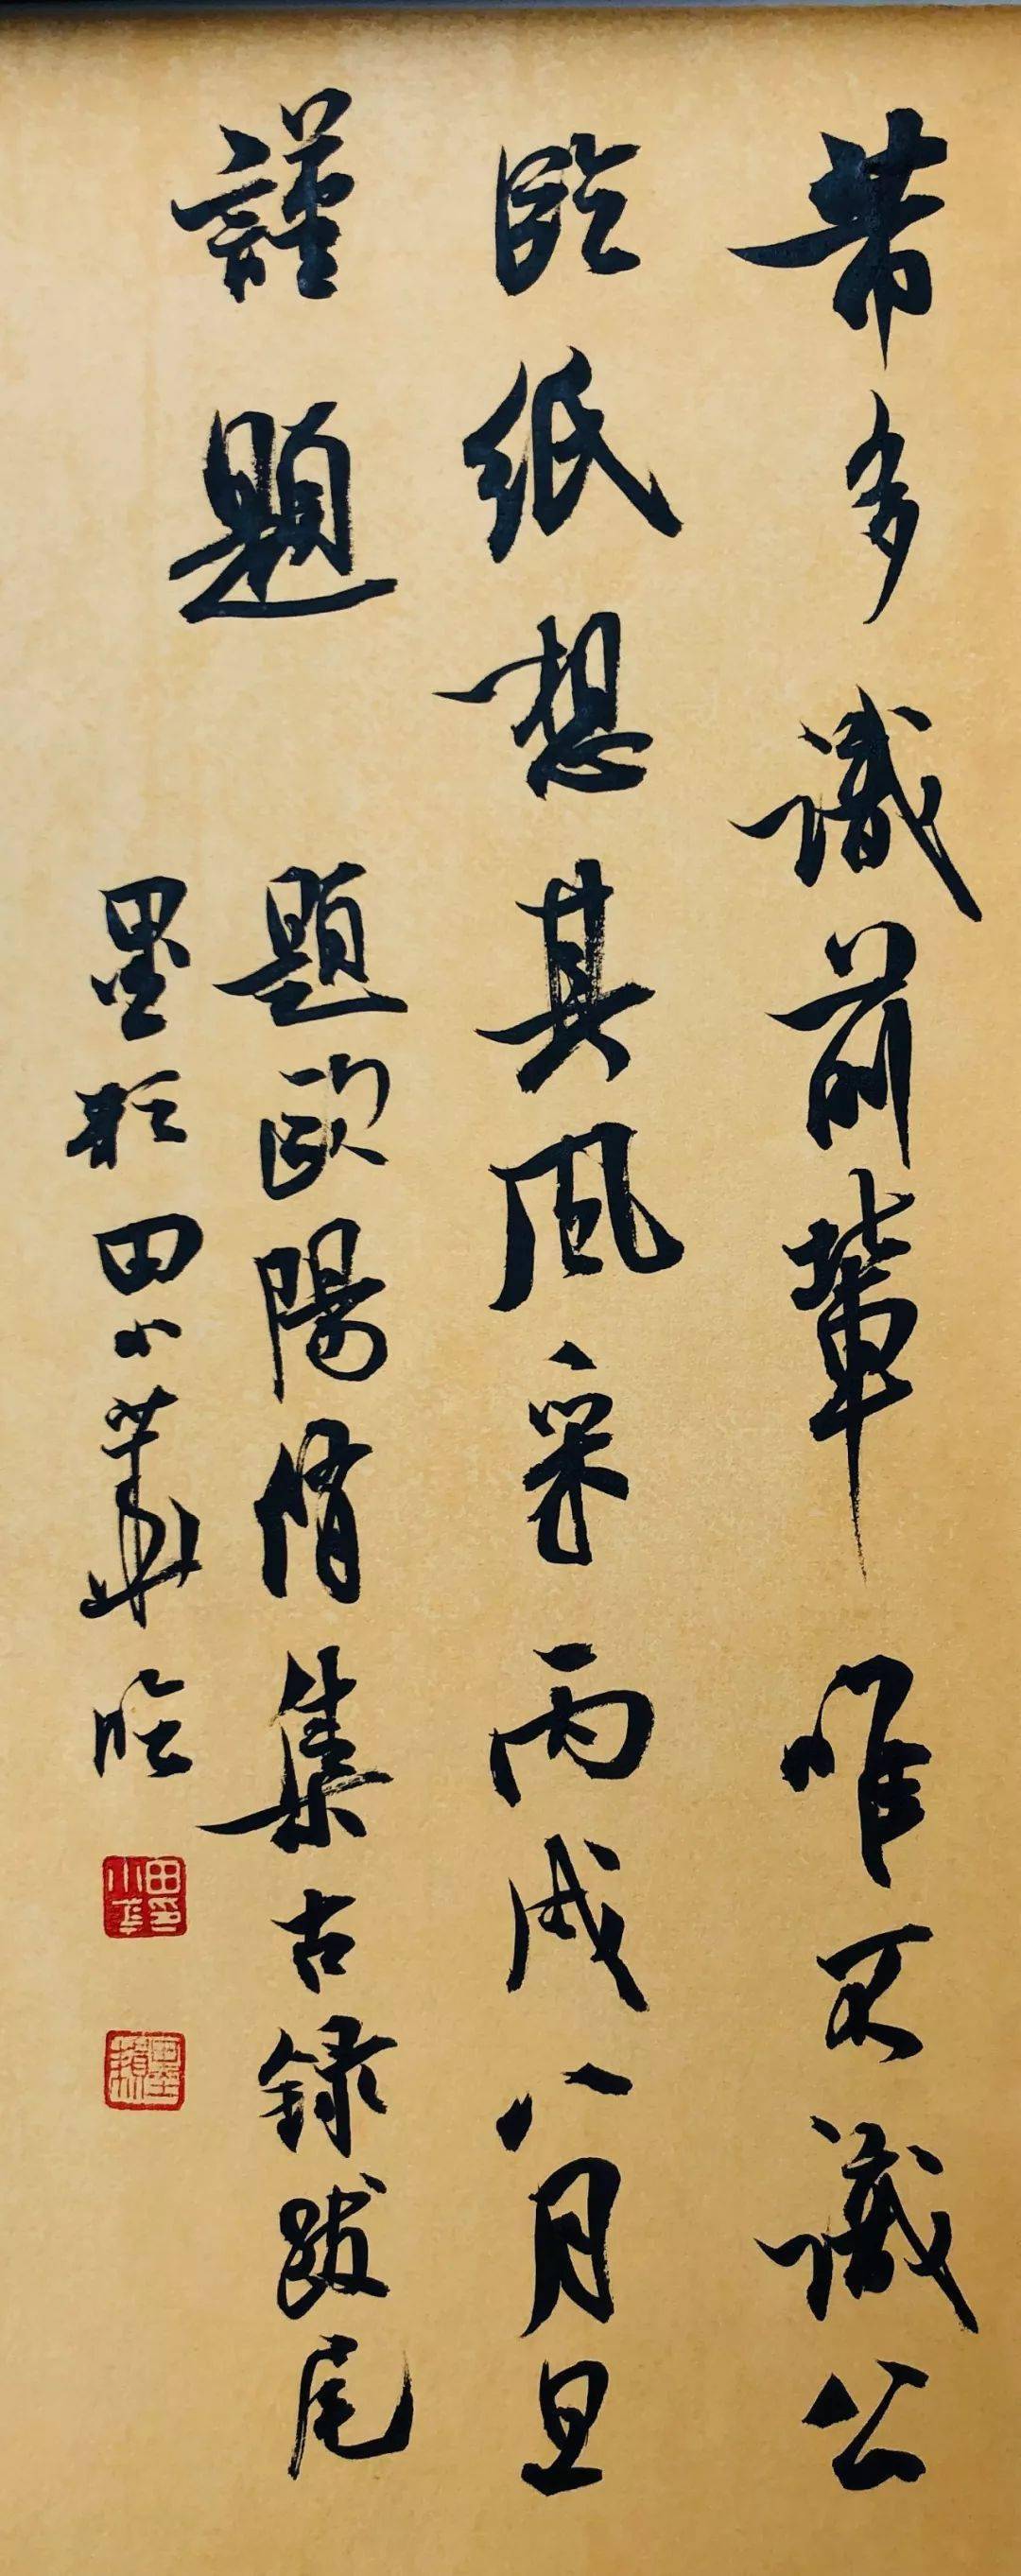 芾多識前輩唯不識公
臨紙想其風采丙戌八月旦
謹題
題歐陽脩集古録跋尾
墨耘田小華臨
田小華印